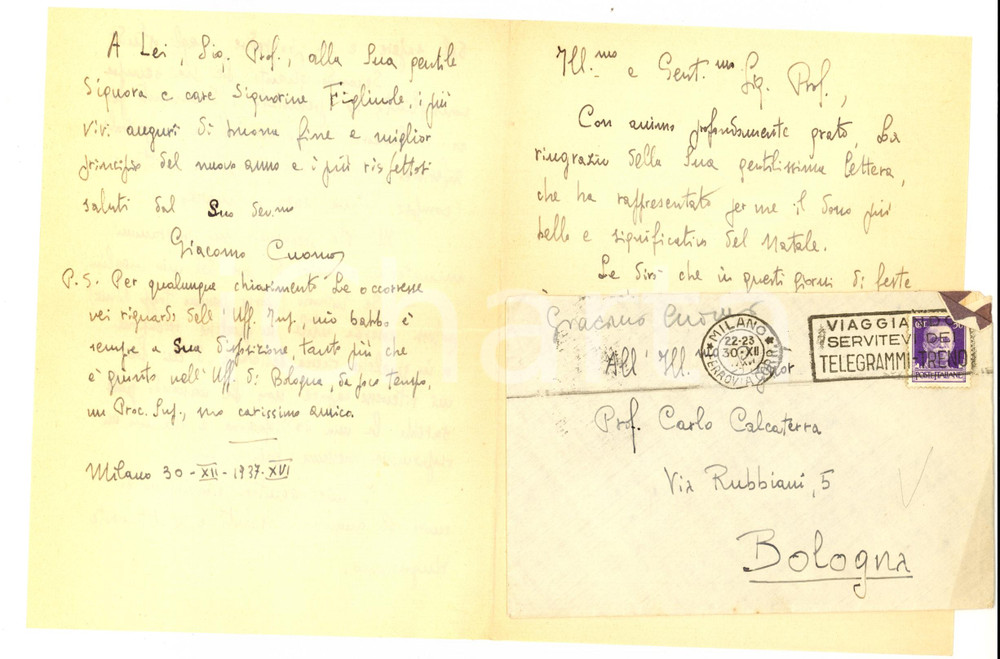 A Lei, Sig. Prof., alla Sua gentile
Signora e care Signorine Figliuole, i più
vivi auguri di buona fine e miglior
principio del nuovo anno e i più rispettosi
saluti dal Suo dev.mo
Giacomo Cuomo
P.S. Per qualunque chiarimento Le occorresse
nei riguardi dell'Uff. Imp., mio babbo è
sempre a Sua disposizione, tanto più che
è giunto nell'Uff. di Bologna, da poco tempo,
un Proc. Sup., suo carissimo amico.
Milano 30-XII-1937-XVI
Ill.mo e Gent.mo Sig. Prof.,
Con animo profondamente grato, La
ringrazio della Sua gentilissima lettera,
che ha rappresentato per me il dono più
bello e significativo del Natale.
Le dirò che in questi giorni di feste
Giacomo Cuomo
MILANO
22-23
30 XII
FERROVIA
VIAGGIA
SERVITEV DE
TELEGRAMMI-TRENO
50
POSTE ITALIANE
All' Ill.mo
Prof. Carlo Calcaterra
Via Rubbiani, 5
Bologna